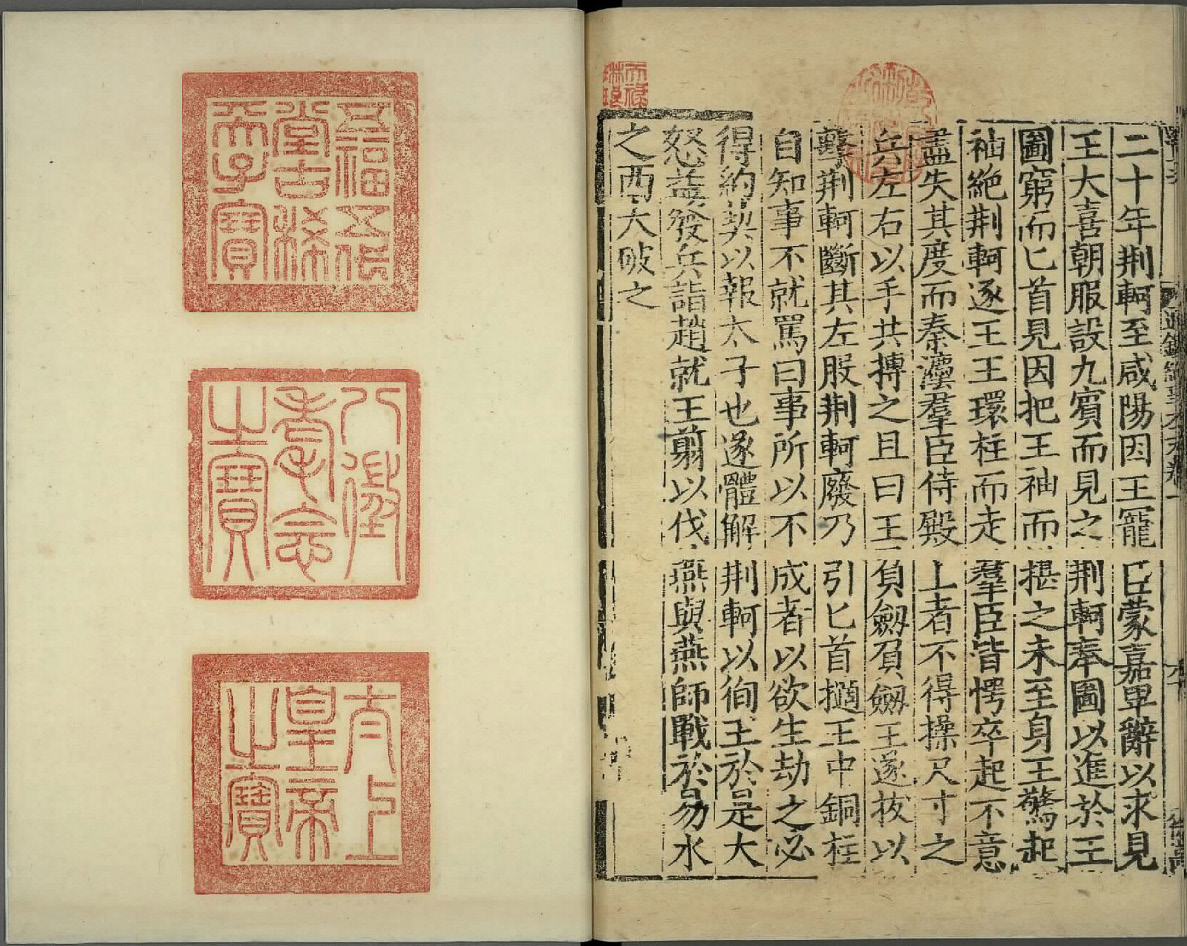 通鑑紀事本末卷一
二十年荆軻至咸陽因王寵臣蒙嘉卑辭以求見
王大喜朝服設九賓而見之荆軻奉圖以進於王
圖窮而匕首見因把王袖而揕之未至身王驚起
袖絶荆軻逐王王環柱而走羣臣皆愕卒起不意
盡失其度而秦灋羣臣侍殿上者不得操尺寸之
兵左右以手共搏之且曰王負劒負劒王遂拔以
擊荆軻斷其左股荆軻廢乃引匕首擿王中銅柱
自知事不就罵曰事所以不成者以欲生劫之必
得約契以報太子也遂體解荆軻以徇王於是大
怒益發兵詣趙就王翦以伐燕與燕師戰於易水
之西大破之
天祿
琳琅
五福五代
堂古稀
天子寶
八徵
耄念
之寶
太上
皇帝
之寶